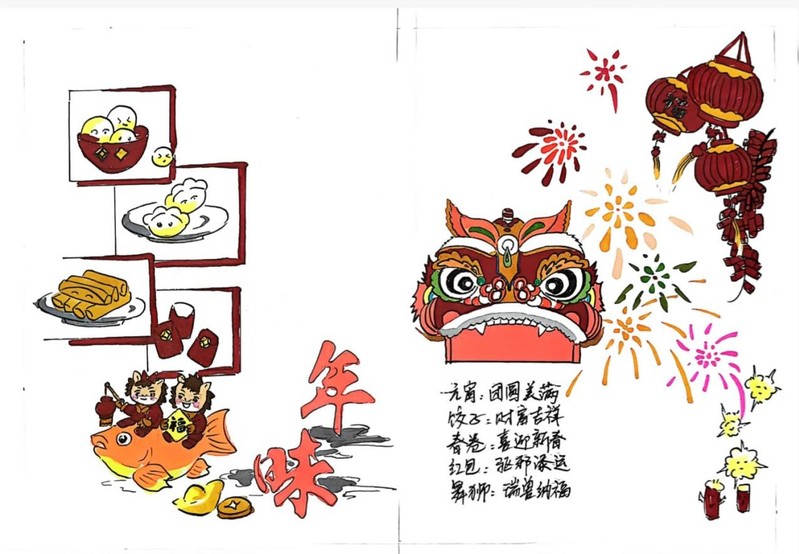 福
年
味
元宵：团圆美满
饺子：财富吉祥
春卷：喜迎新春
红包：驱邪添运
舞狮：瑞兽纳福